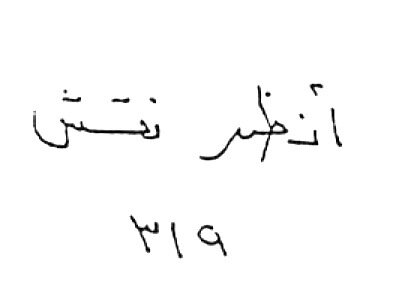 أنظر نقش
٣١٩